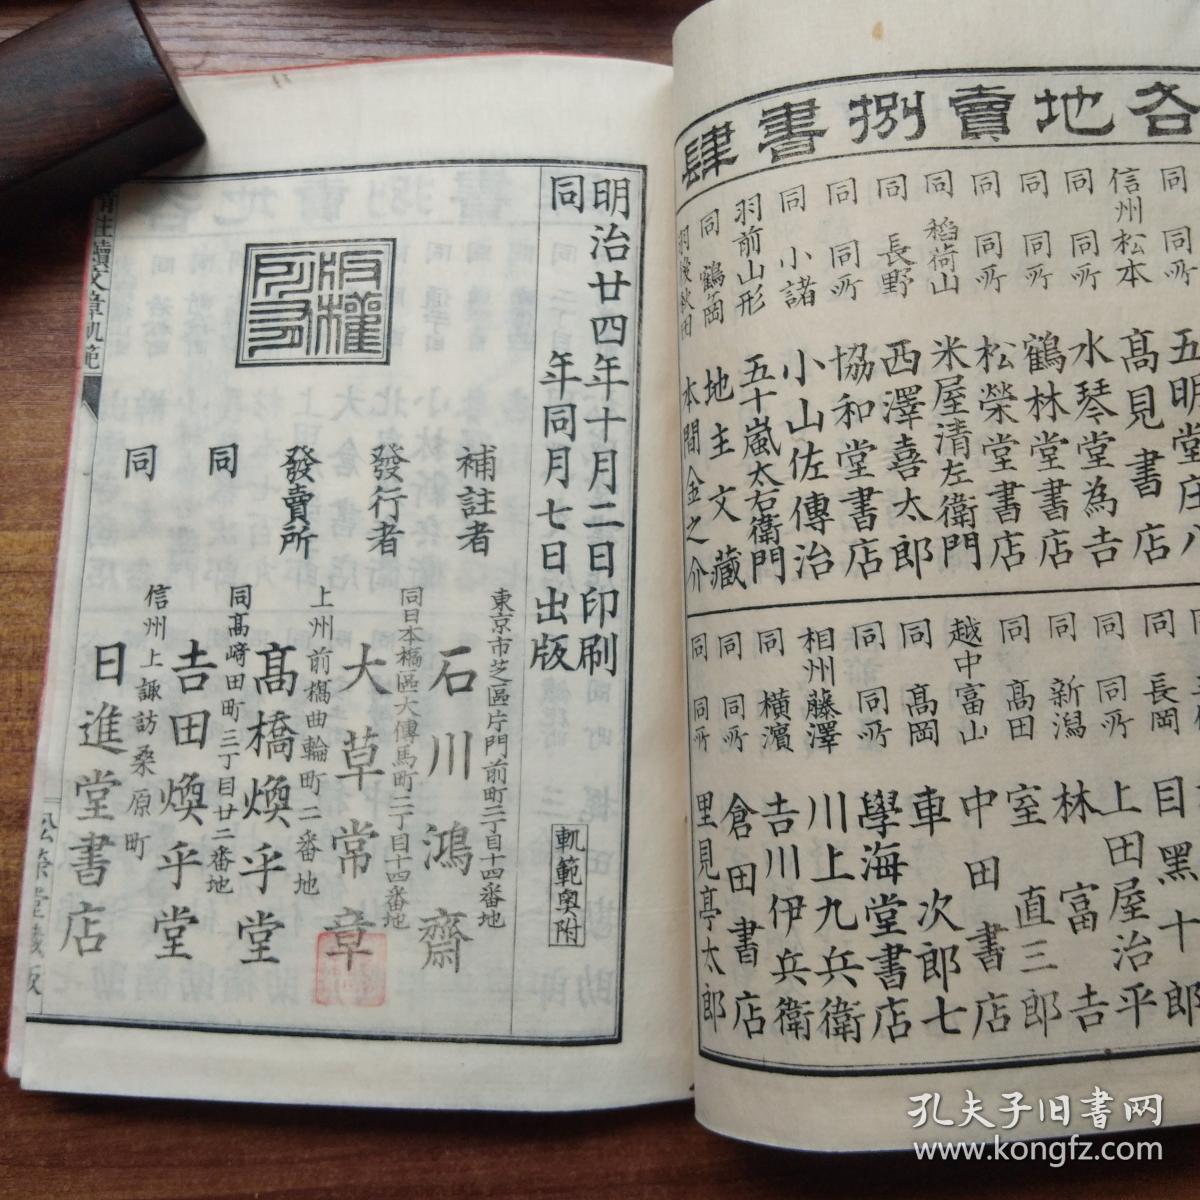 各地賣捌書肆
同 同所 五明堂庄八
信州松本 高見書店
同 同所 水琴堂為吉
同 同所 鶴林堂書店
同 同所 松榮堂書店
同 稻荷山 米屋清左衛門
同 長野 西澤喜太郎
同 同所 協和堂書店
同 小諸 小山佐傳治
羽前山形 五十嵐太右衛門
同 鶴岡 地主文藏
羽後秋田 本間金之介
同 長岡 目黑十郎
同 同所 上田屋治平
同 新潟 林富吉
同 高田 室直三郎
越中富山 中田書店
同 高岡 車次郎七
同 同所 學海堂書店
相州藤澤 川上九兵衛
同 橫濱 吉川伊兵衛
同 同所 倉田書店
同 同所 里見亭太郎
明治廿四年十月二日印刷
同年同月七日出版
軌範奧附
版權所有
補註者 東京市芝區片門前町二丁目十四番地 石川鴻齋
發行者 同日本橋區大傳馬町二丁目十四番地 大草常章
發賣所 上州前橋曲輪町二番地 高橋煥乎堂
同 同高崎田町三丁目廿二番地 吉田煥乎堂
同 信州上諏訪桑原町 日進堂書店
補註續文章軌範
松榮堂藏版
孔夫子旧书网
www.kongfz.com